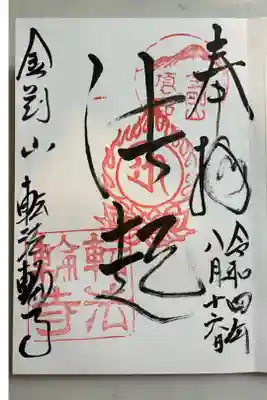 奉拝
令和四年
八月十六日
法起
金剛山 転法輪寺
轉法
輪寺